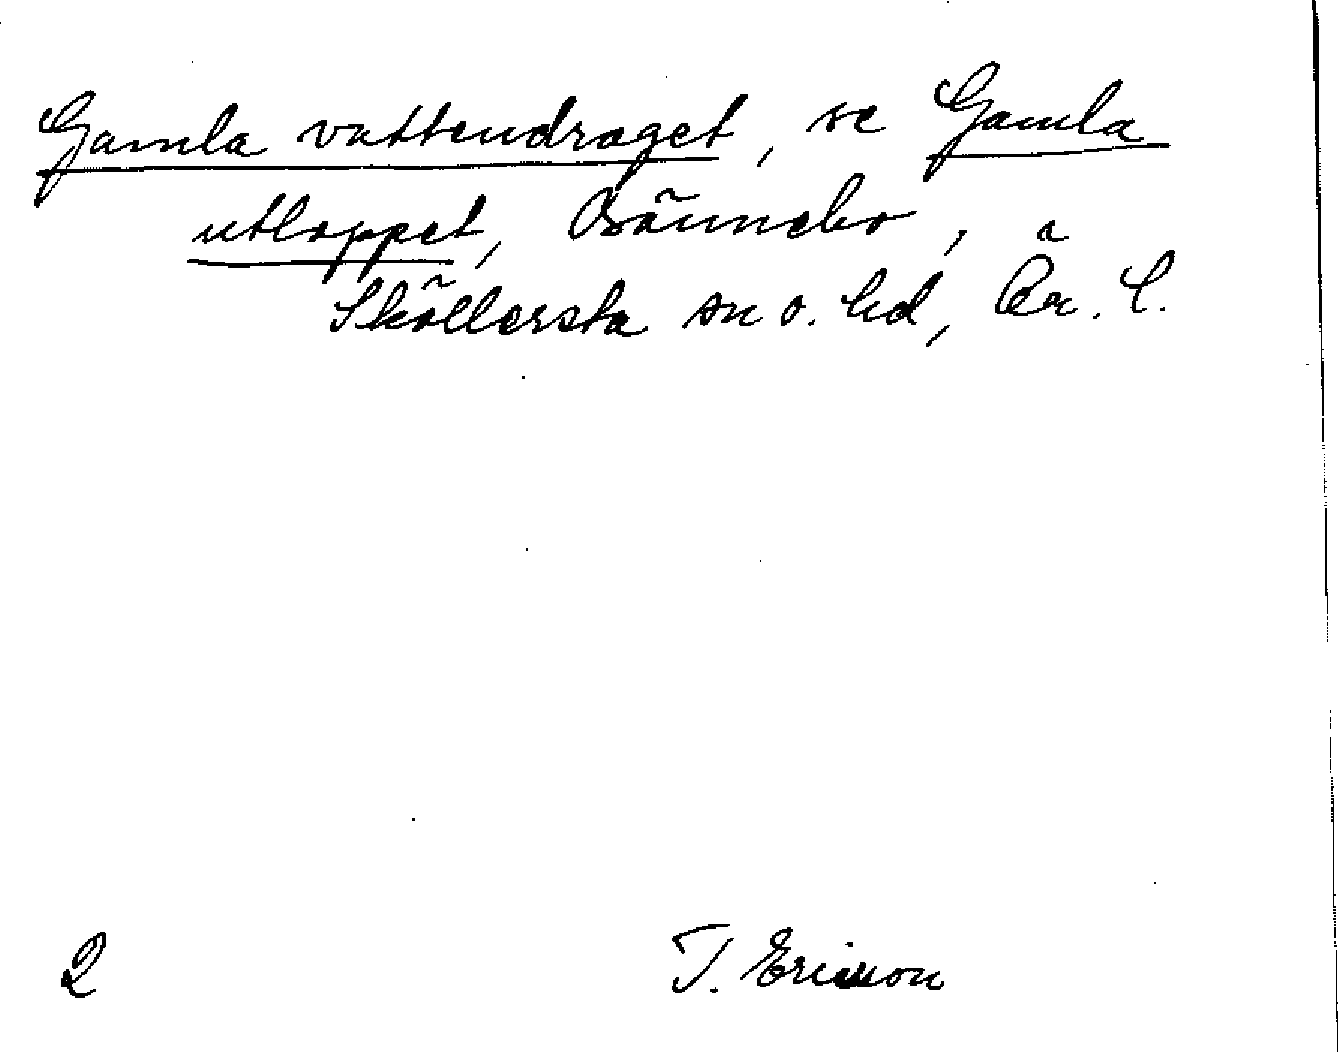 Gamla vattendraget, se Gamla
utloppet, Brännebo,
Sköllersta sn o. hd, Ör. l.
2 T. Ericsson